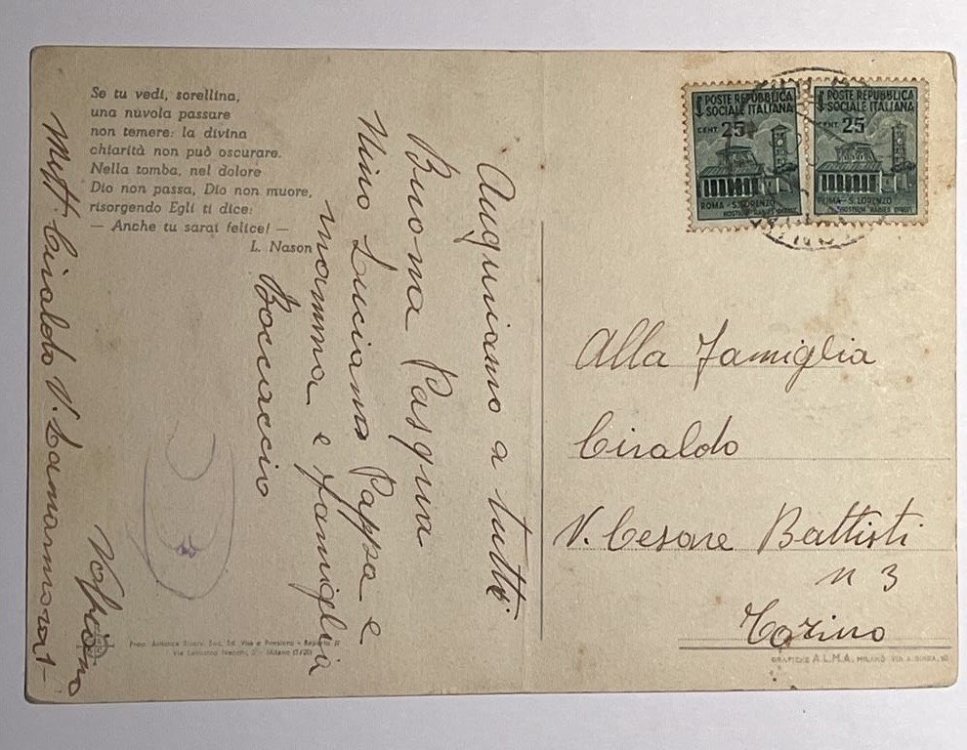 Se tu vedi, sorellina,
una nuvola passare
non temere: la divina
chiarità non può oscurare.
Nella tomba, nel dolore
Dio non passa, Dio non muore,
risorgendo Egli ti dice:
— Anche tu sarai felice! —
L. Nason
Auguriamo a tutti
Buona Pasqua
Nino Luciana Pappa e
mamma e famiglia
Boccaccio
Mitt. Ciraldo V. Lamarmora 1
Volpiano
POSTE REPUBBLICA
SOCIALE ITALIANA
CENT. 25
ROMA - S. LORENZO
POSTE REPUBBLICA
SOCIALE ITALIANA
CENT. 25
ROMA - S. LORENZO
Alla Famiglia
Ciraldo
V. Cesare Battisti
n 3
Torino
Milano
GRAFICHE A.L.M.A. MILANO VIA A.